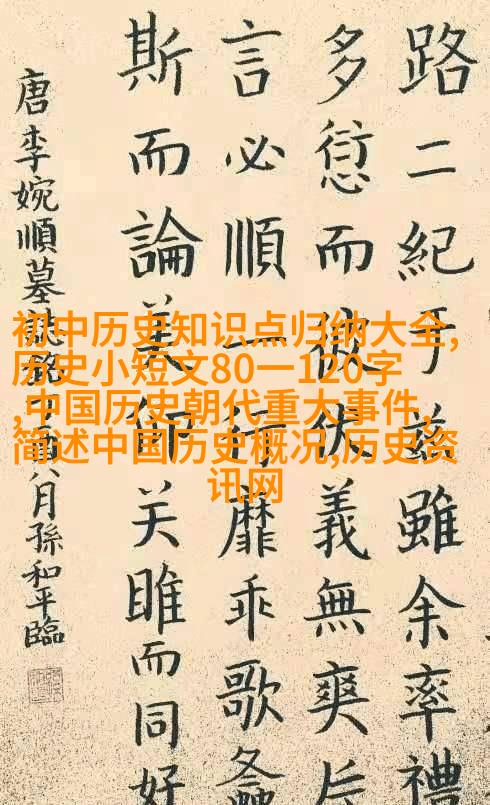 路二紀于茲雖余率禮
多愆而彼伏義無爽
言必順行靡乖歌
斯而論美关雎而同好
唐李婉順墓誌銘八月孫和平臨
初中历史知识点归纳大全,
历史小短文80一120字
,中国历史朝代重大事件,
简述中国历史概况,历史资
讯网